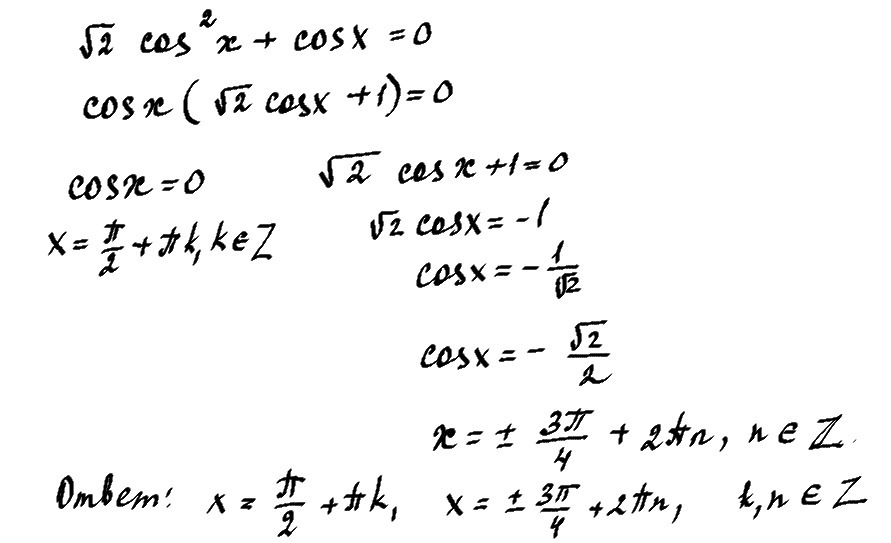 √2 cos²x + cosx = 0
cosx(√2 cosx + 1) = 0
cosx = 0
x = π/2 + πk, k ∈ Z
√2 cosx + 1 = 0
√2 cosx = -1
cosx = - 1/√2
cosx = - √2/2
x = ± 3π/4 + 2πn, n ∈ Z.
Ответ: x = π/2 + πk, x = ± 3π/4 + 2πn, k, n ∈ Z